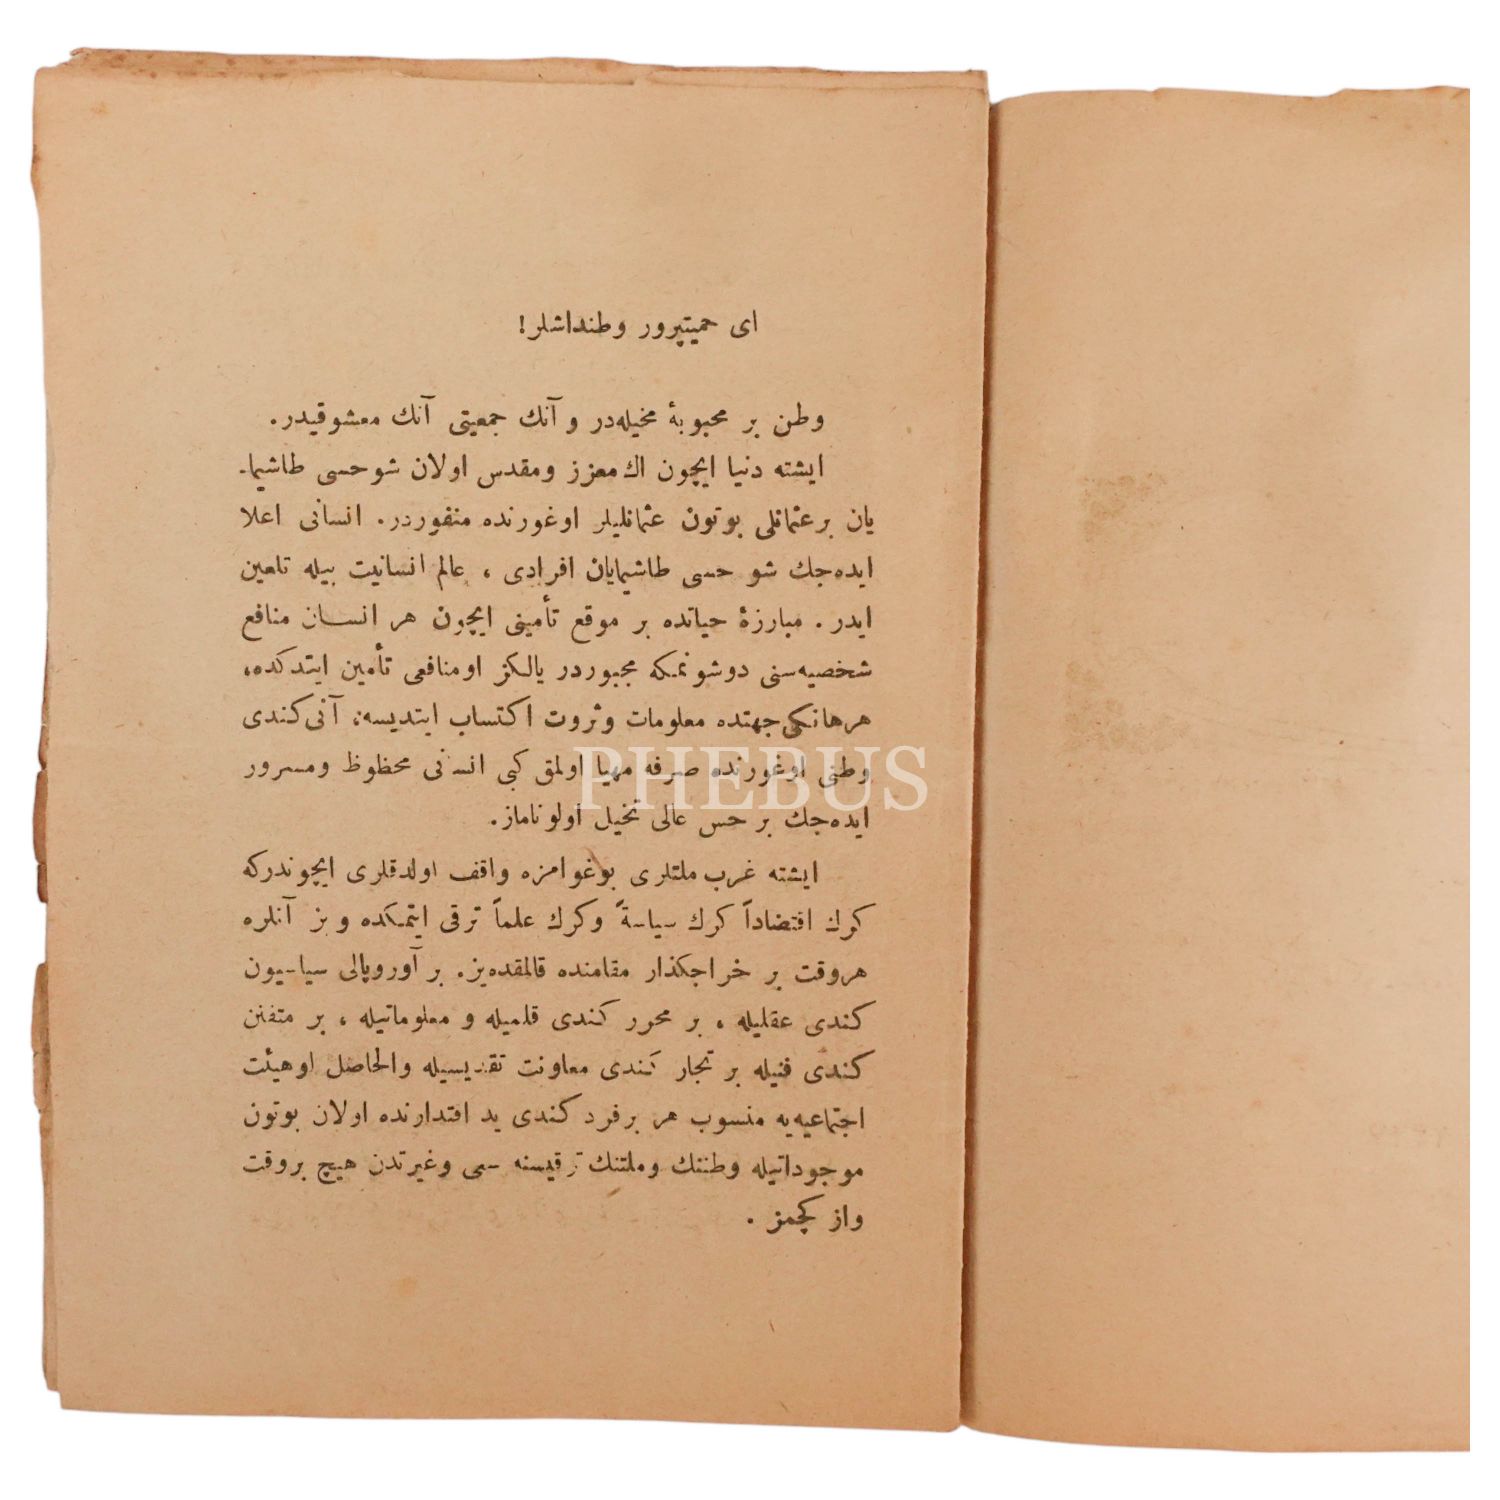 ای حمیتپرور وطنداشلر!
وطن بر محبوبۀ مخیله‌در و آنك جمعیتی آنك معشوقیدر.
ایشته دنیا ایچون اك معزز ومقدس اولان شو حسی طاشیما-
یان بر عثمانلی بوتون عثمانلیلر اوغورنده منفوردر. انسانی اعلا
ایده‌جك شو حسی طاشیمایان افرادی ، عالم انسانیت بیله تلعین
ایدر . مبارزۀ حیاتده بر موقع تأمینی ایچون هر انسان منافع
شخصیه‌سنی دوشونمکه مجبوردر یالکز او منافعی تأمین ایتدکده،
هرهانکی جهتده معلومات وثروت اکتساب ایتدیسه، آنی کندی
وطنی اوغورنده صرفه مهیا اولمق کبی انسانی محظوظ ومسرور
ایده‌جك بر حس عالی تخیل اولوناماز.
ایشته غرب ملتلری بوغوامزه واقف اولدقلری ایچوندرکه
کرك اقتصاداً کرك سیاسةً وکرك علماً ترقی ایتمکده وبز آنلره
هروقت بر خراجکذار مقامنده قالمقده‌یز. بر آوروپالی سیاسیون
کندی عقلیله ، بر محرر کندی قلمیله و معلوماتیله ، بر متفنن
کندی فنیله بر تجار کندی معاونت نقدیسیله والحاصل اوهیئت
اجتماعیه‌یه منسوب هر برفرد کندی ید اقتدارنده اولان بوتون
موجوداتیله وطننك وملتنك ترقیسنه سعی وغیرتدن هیچ بروقت
واز کچمز .
PHEBUS